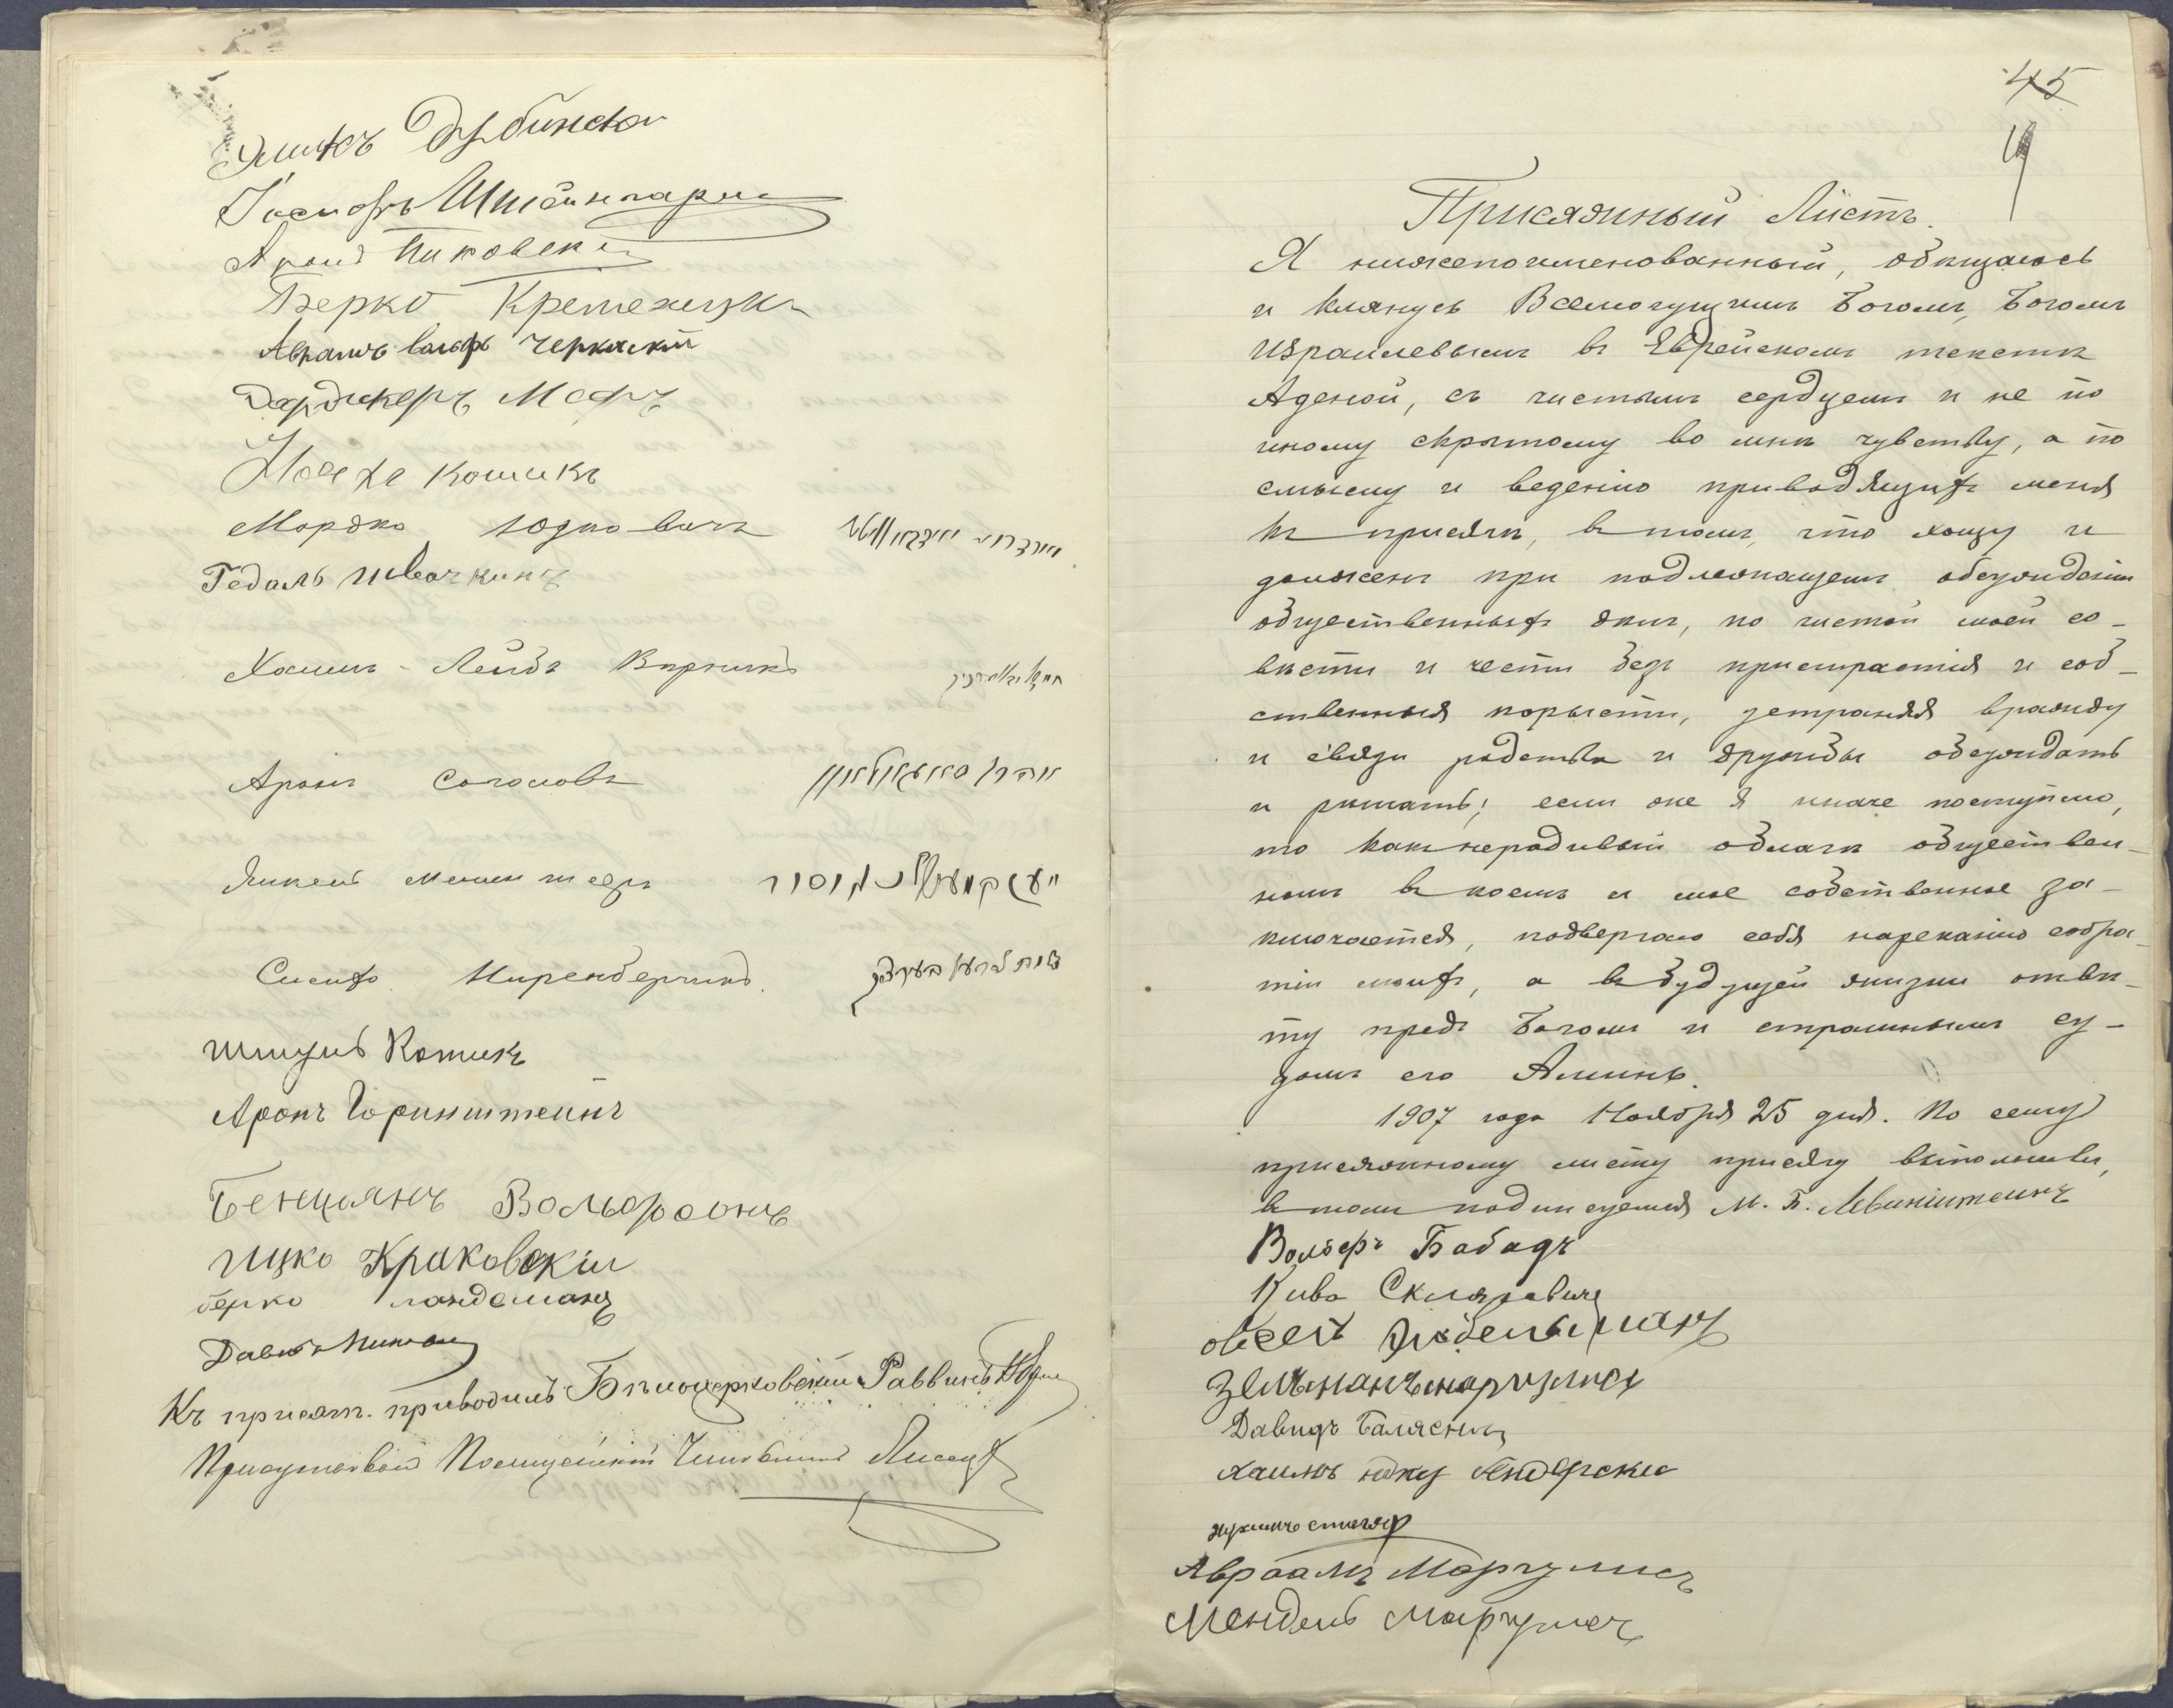 Дубинский
Іосифъ Штейнгарцъ
Аронъ Пиковскій
Берко Кременецкій
Аврамъ Вольфъ Черкаскій
Дардикеръ
Кошикъ
Мордко Юдковичъ
Гедаль Ивочкинъ
Хаимъ-Лейбъ
Аронъ Соголовъ
Янкель
Сисифо Ниренбергинъ.
Шмуль Котикъ
Аронъ Горинштейнъ
Бенціянъ Вольфсонъ
Ицко Краковскій
Берко Ландсманъ
Давидъ
Къ присягѣ приводилъ Бѣлоцерковскій Раввинъ
Присутствовалъ Полицейскій Чиновникъ
45
Присяжный Листъ.
Я нижепоименованный, обѣщаюсь
и клянусь Всемогущимъ Богомъ, Богомъ
Израилевымъ въ Еврейскомъ текстѣ
Аденой, съ чистымъ сердцемъ и не по
иному скрытому во мнѣ чувству, а по
смыслу и веденію приводящихъ меня
къ присягѣ, въ томъ, что хощу и
долженъ при подлежащемъ обсужденіи
общественныхъ дѣлъ, по чистой моей со-
вѣсти и чести безъ пристрастія и соб-
ственныя корысти, устраняя вражду
и связи родства и дружбы обсуждать
и рѣшать; если же я иначе поступлю,
то какъ нерадивый облагѣ обществен-
номъ въ коемъ и мое собственное за-
ключается, подвергаю себя нареканію собра-
тій моихъ, а въ будущей жизни отвѣ-
ту предъ Богомъ и страшнымъ су-
домъ его Аминь.
1907 года Ноября 25 дня. По сему
присяжному листу присягу выполнивъ,
въ томъ подписуемся М. Б. Левинштейнъ
Вольфъ Бабадъ
Кива Скляревичъ
Овсей
Зельманъ Маргулисъ
Давидъ Балясный
Хаимъ
Нухимъ Столяръ
Авраамъ Маргулисъ
Мендель Маргулисъ